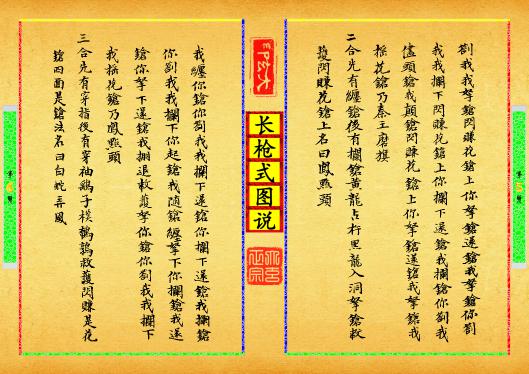 劄我我拏鎗閃賺花鎗上你拏鎗還鎗我拏鎗你劄
我我攔下閃賺花鎗上你攔下還鎗我攔鎗你劄我
儘頭鎗我顛鎗閃賺花鎗上你拏鎗還鎗我拏鎗我
搖花鎗乃秦王磨旗
二合先有纏鎗後有攔鎗黃龍占杆黑龍入洞拏鎗救
護閃賺花鎗上名曰鳳點頭
长枪式图说
我纏你鎗你劄我我攔下還鎗你攔下還鎗我攔鎗
你劄我我攔下你起鎗我隨鎗纏拏下你攔鎗我還
鎗你拏下還鎗我掤退救護拏你鎗你劄我我攔下
我搖花鎗乃鳳點頭
三合先有穿指後有穿袖鷂子撲鵪鶉救護閃賺是花
鎗四面是鎗法名曰白蛇弄風